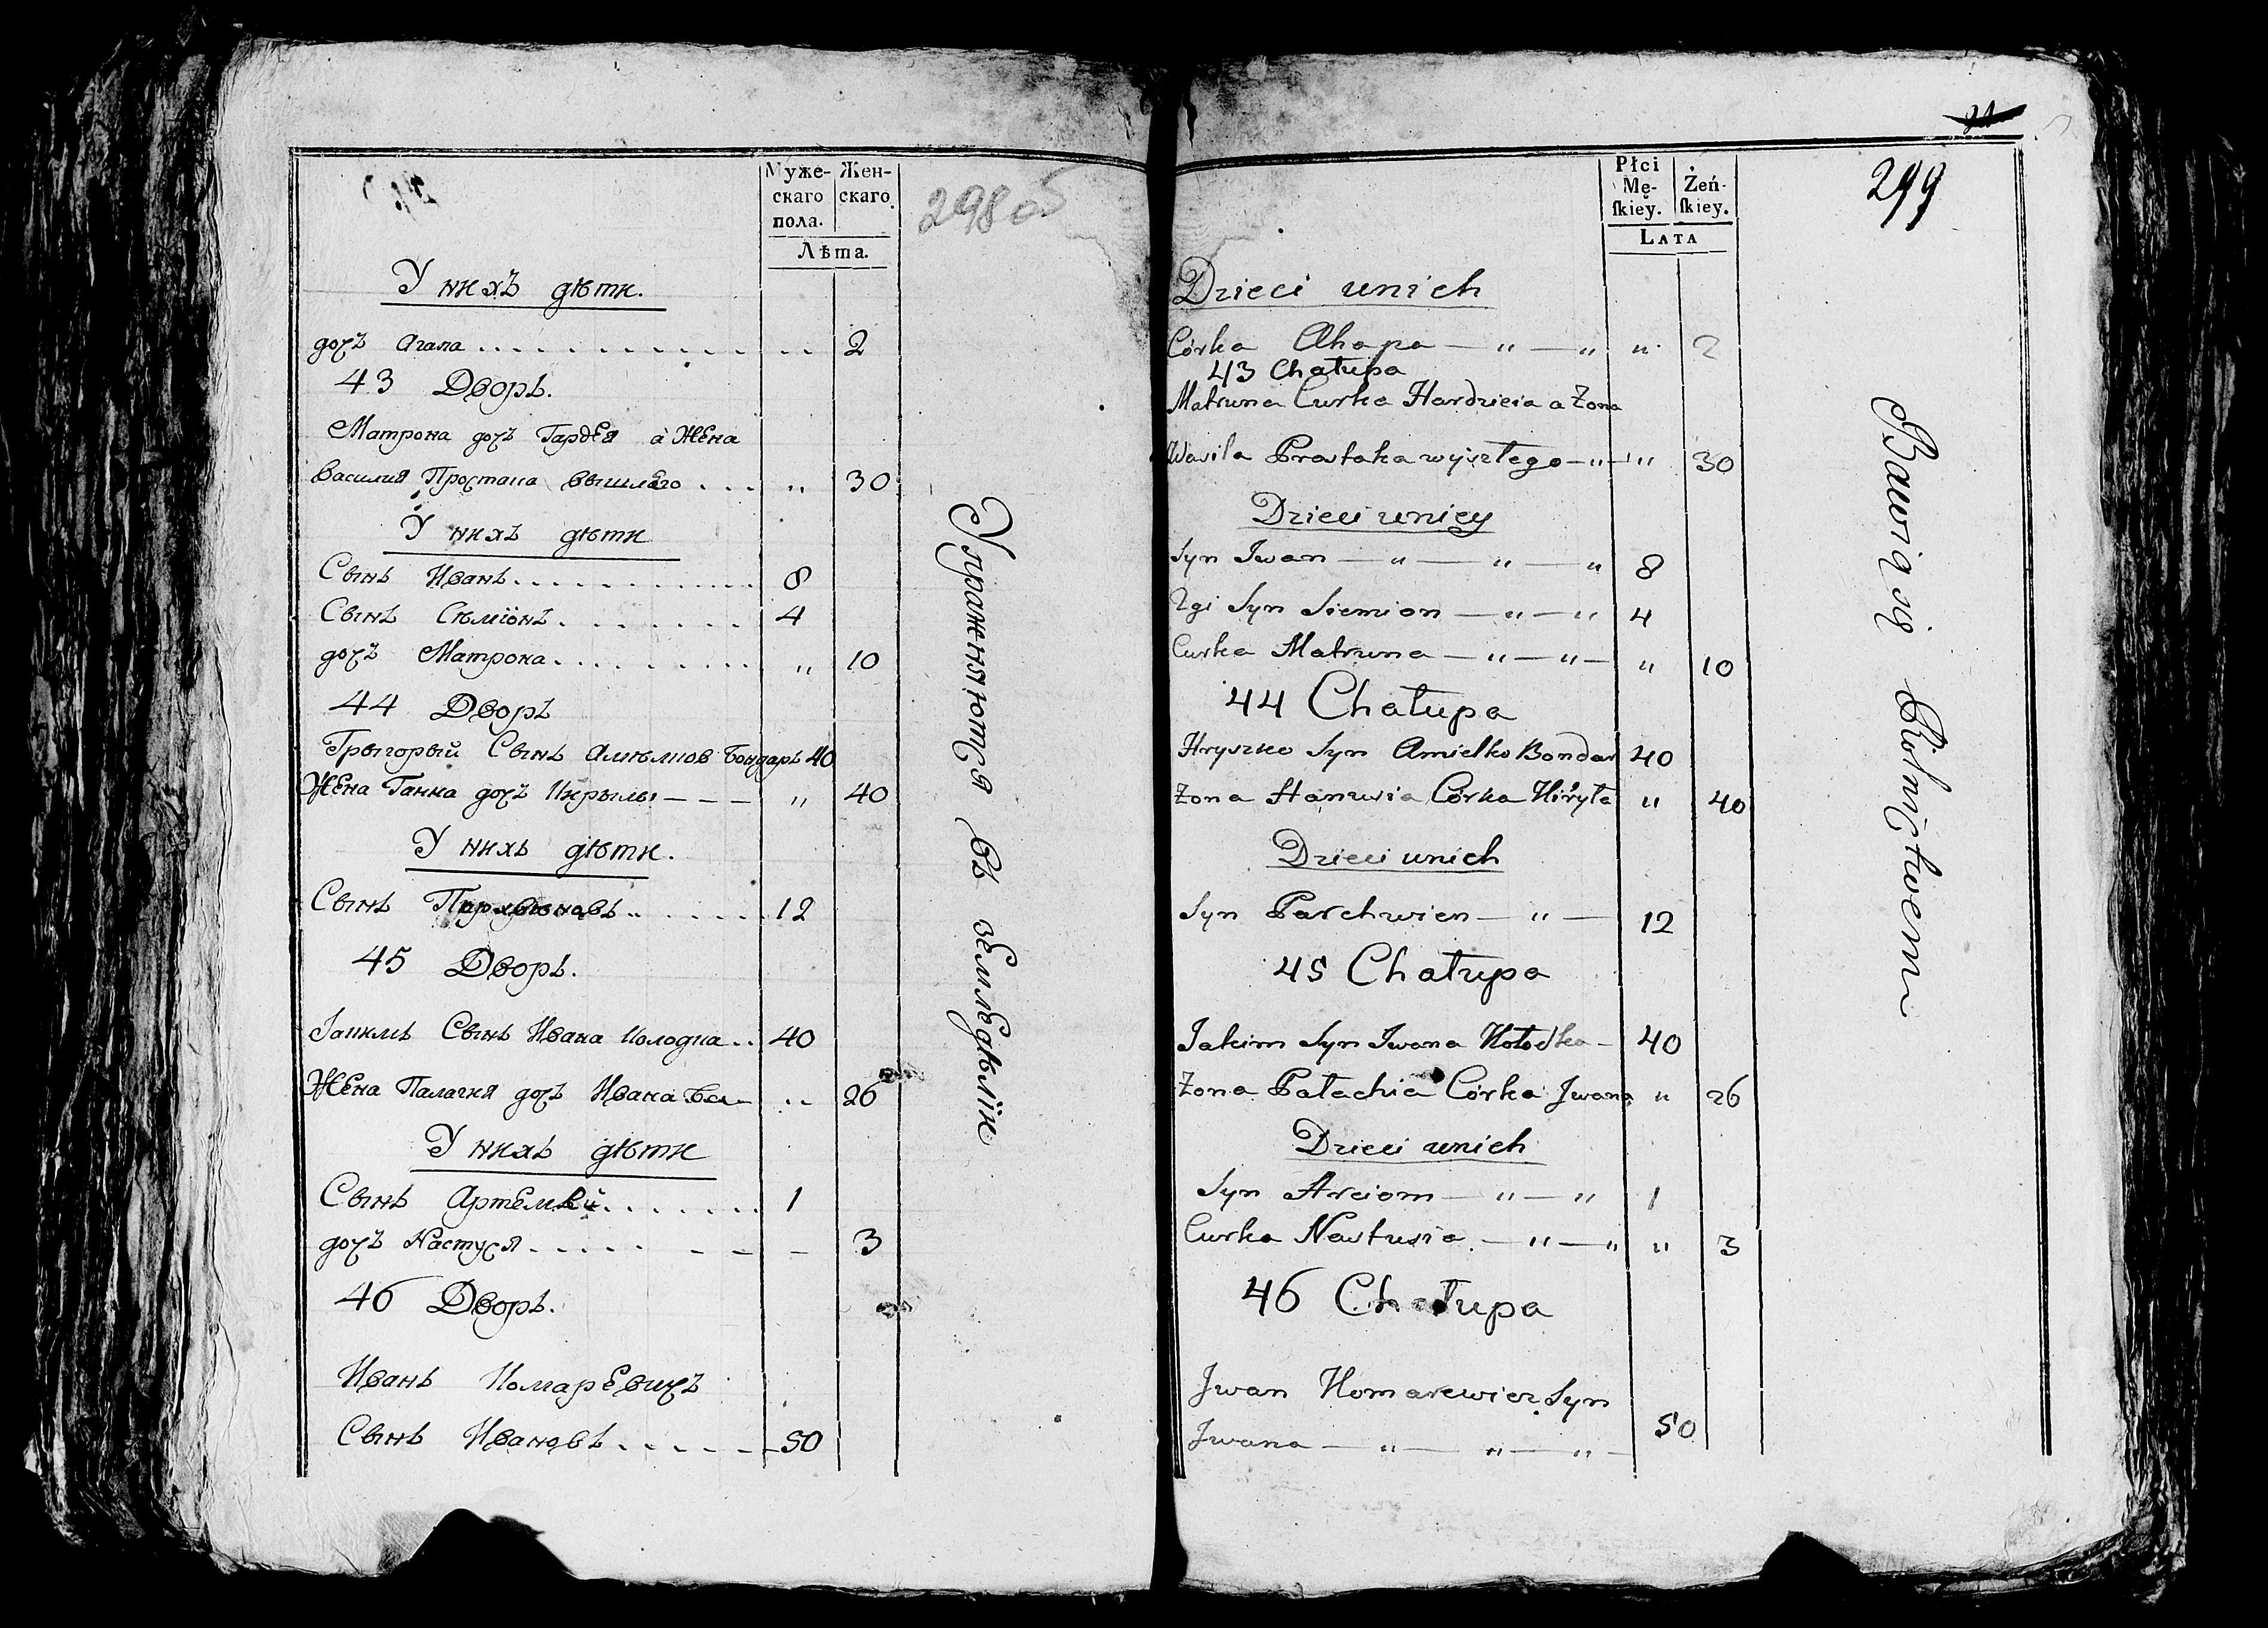 Мужескаго пола. Женскаго.
Лѣта.
298об
У нихъ дѣти.
дочъ Агапа 2
43 Дворъ.
Матрона дочъ Гардѣя а Жена
Василия Простака вышлаго „ 30
У нихъ дѣти
Сынъ Иванъ 8
Сынъ Сѣміонъ 4
дочъ Матрона „ 10
44 Дворъ
Грыгорый Сынъ Амѣлков Бондаръ 40
Жена Ганна дочъ Кирылы „ 40
У нихъ дѣти.
Сынъ 12
45 Дворъ.
Іакимъ Сынъ Ивана Колодка 40
Жена Палагия дочъ Ивана 26
У нихъ дѣти
Сынъ Артемѣй 1
дочъ Настуся 3
46 Дворъ.
Иванъ Комаревичъ
Сынъ Ивановъ 50
Упражняются въ земледѣліи
299
Płci Męſkiey. Żeńſkiey.
LATA
Dzieci unich
Córka Ahapa — „ — „ „ 2
43 Chałupa
Matruna Curka Hardzieia a Żona
Wasila Prostaka wyszłego — „ — „ 30
Dzieci uniey
Syn Iwan — „ — „ — „ 8
2gi Syn Siemion — „ — „ 4
Curka Matruna — „ — „ — „ 10
44 Chałupa
Hryszko Syn Amielko Bondar 40
Żona Hanusia Córka Kiryła „ 40
Dzieci unich
Syn Parchwien — „ — 12
45 Chałupa
Jakim Syn Iwana Kołodka — 40
Żona Pałachia Córka Jwana „ 26
Dzieci unich
Syn Arciom — „ — „ 1
Curka Nastusia — „ — „ „ 3
46 Chałupa
Jwan Komarewicz Syn
Jwana — „ — „ — „ — 50
Bawią się Rolnictwem